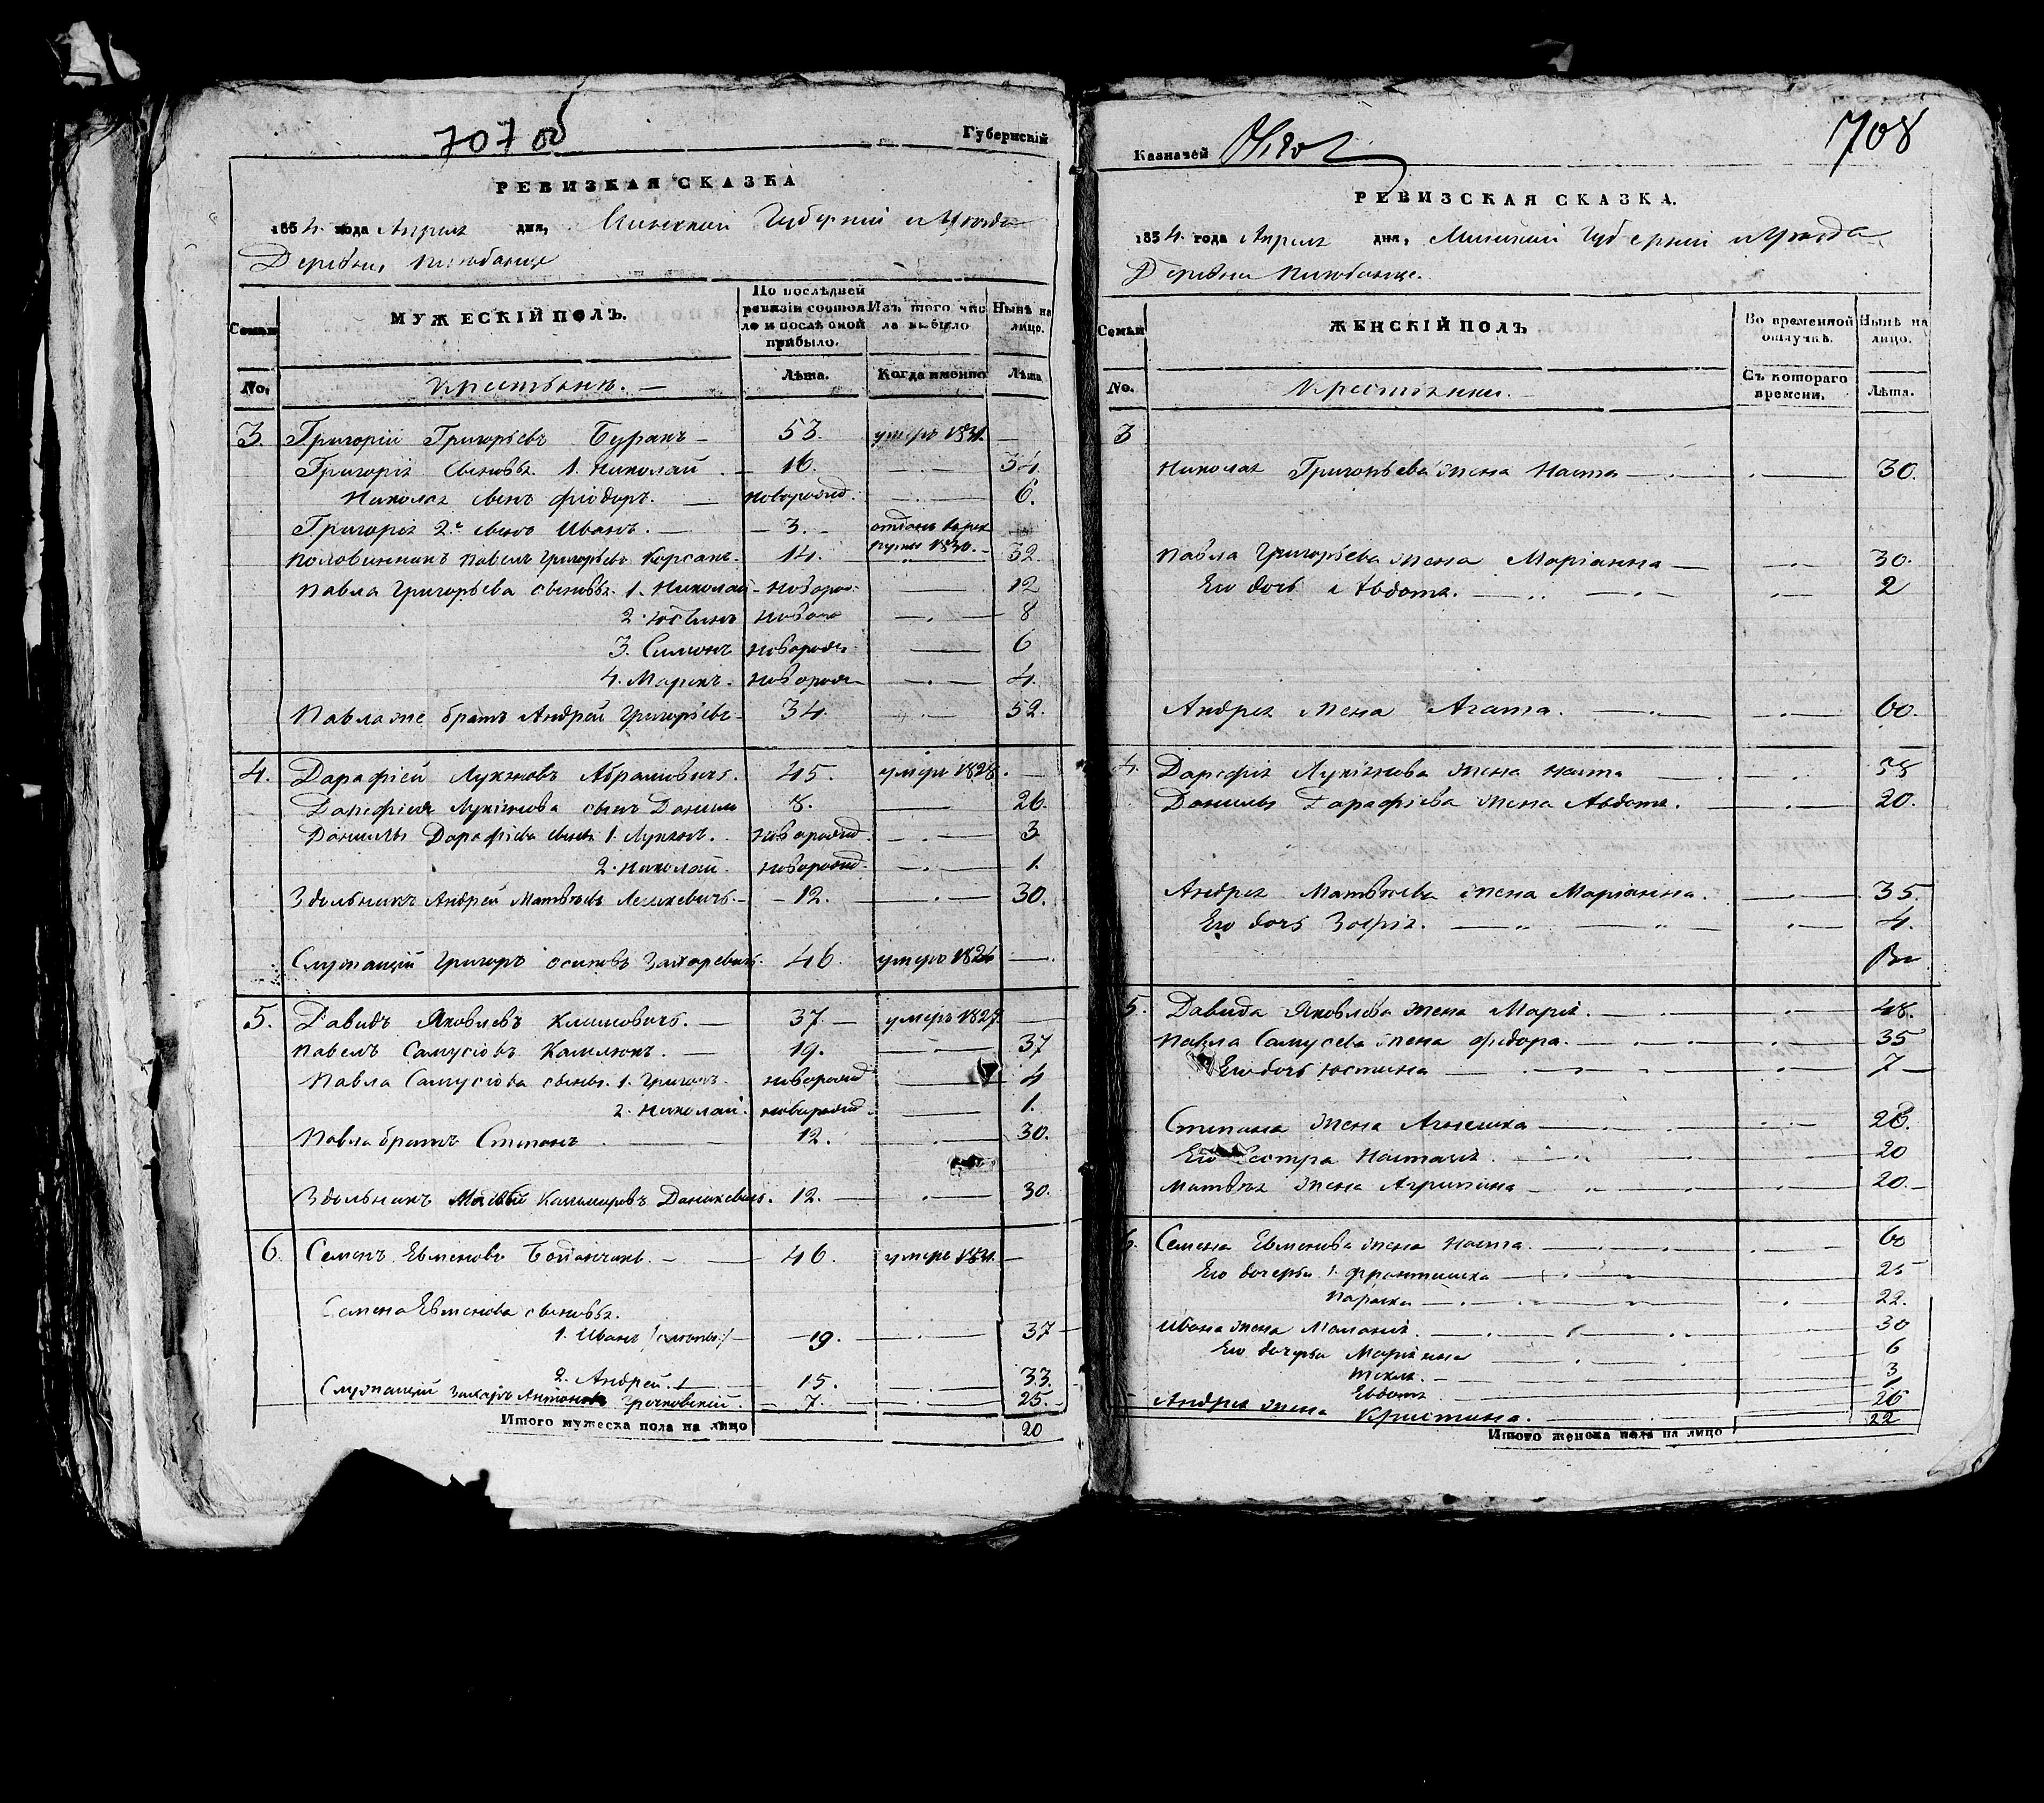 707 об
Губернскій
РЕВИЗКАЯ СКАЗКА
1834. года Апреля дня, Минской Губерніи и Уезда
Деревни
МУЖЕСКІЙ ПОЛЪ.
По последней ревизіи состояло и после оной прибыло.
Изъ того числа выбыло
Ныне на лицо.
Семьи
No.
Крестьяне. —
Лета.
Когда именно
Лета
3. Григорій Григорьевъ Буракъ — 53. умеръ 1831. —
Григорія сыновья 1. Николай — 16. — 34.
Николая сынъ Фіодоръ. — новорожд. — 6.
Григорія 2й сынъ Иванъ. — 3. — отданъ в рекруты 1830. —
Половинникъ Павелъ Григорьевъ Корсакъ. 14. — 32.
Павла Григорьева сыновья. 1. Николай — новорож. — 12
2. Юстинъ новорож — 8
3. Симонъ новорожд. — 6
4. Марко. новорож — 4.
Павла же братъ Андрей Григорьевъ. 34. — 52.
4. Дарафей Лукяновъ Абрамовичъ. 45. умеръ 1828. —
Дарафея Лукянова сынъ Данила 8. — 26.
Данилы Дарафеева сынъ 1. Лукянъ. новорожд. — 3
2. Николай. новорожд. — 1.
Здольникъ Андрей Матвеевъ — 12. — 30.
Служащій Григоръ Осиповъ Захаревичъ. 46. умеръ 1826 —
5. Давидъ Яковлевъ Климовичъ. — 37 — умеръ 1827. —
Павелъ Самусіовъ Камлюкъ. — 19. — 37
Павла Самусіова сынъ. 1. Григоръ. новорожд — 4
2. Николай. новорожд. — 1.
Павла братъ Степанъ. — 12. — 30.
Здольникъ Матвей Казимировъ Данилевичъ. 12. — 30.
6. Семенъ Евменовъ — 46. умеръ 1831. —
Семена Евменова сыновья.
1. Иванъ — 19. — 37
2. Андрей. — 15. — 33.
Служащій Захаръ Антоновъ Грочковскій. — 7. — 25.
Итого мужеска пола на лицо 20
Казначей
708
РЕВИЗСКАЯ СКАЗКА.
1834. года Апреля дня, Минской Губерніи и Уезда
Деревни
ЖЕНСКІЙ ПОЛЪ
Во временной отлучке.
Ныне на лицо.
Семьи
No.
Крестьянки. —
Съ котораго времени.
Лета.
3
Николая Григорьева жена Наста — 30.
Павла Григорьева жена Маріанна — 30.
Его дочь Авдотя. — 2
Андрея жена Агата. — 60.
4. Дарафея Лукянова жена Наста — 58
Данилы Дарафеева жена Авдотя. — 20.
Андрея Матвеева жена Маріанна. — 35.
Его дочь Зофія. — 4.
5. Давида Яковлева жена Марія. — 48.
Павла Самусева жена Федора. — 35
Его дочь Юстина — 7 —
Степана жена Агнешка — 26.
Его сестра Насталя. — 20
Матвея жена Агрипина — 20. —
6. Семена Евменова жена Наста. — 60
Его дочери 1. Франтишка — 25
Параска — 22.
Ивана жена Маланія. — 30
Его дочери Маріяна — 6
Текля. — 3
Евдотя — 1
Андрея жена Кристина. — 26
Итого женска пола на лицо 22